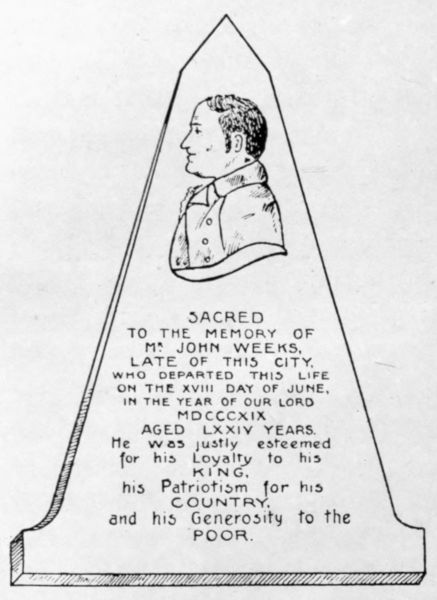 SACRED
TO THE MEMORY OF
Mr. JOHN WEEKS,
LATE OF THIS CITY,
WHO DEPARTED THIS LIFE
ON THE XVIII DAY OF JUNE,
IN THE YEAR OF OUR LORD
MDCCCXIX
AGED LXXIV YEARS.
He was justly esteemed
for his Loyalty to his
KING,
his Patriotism for his
COUNTRY,
and his Generosity to the
POOR.